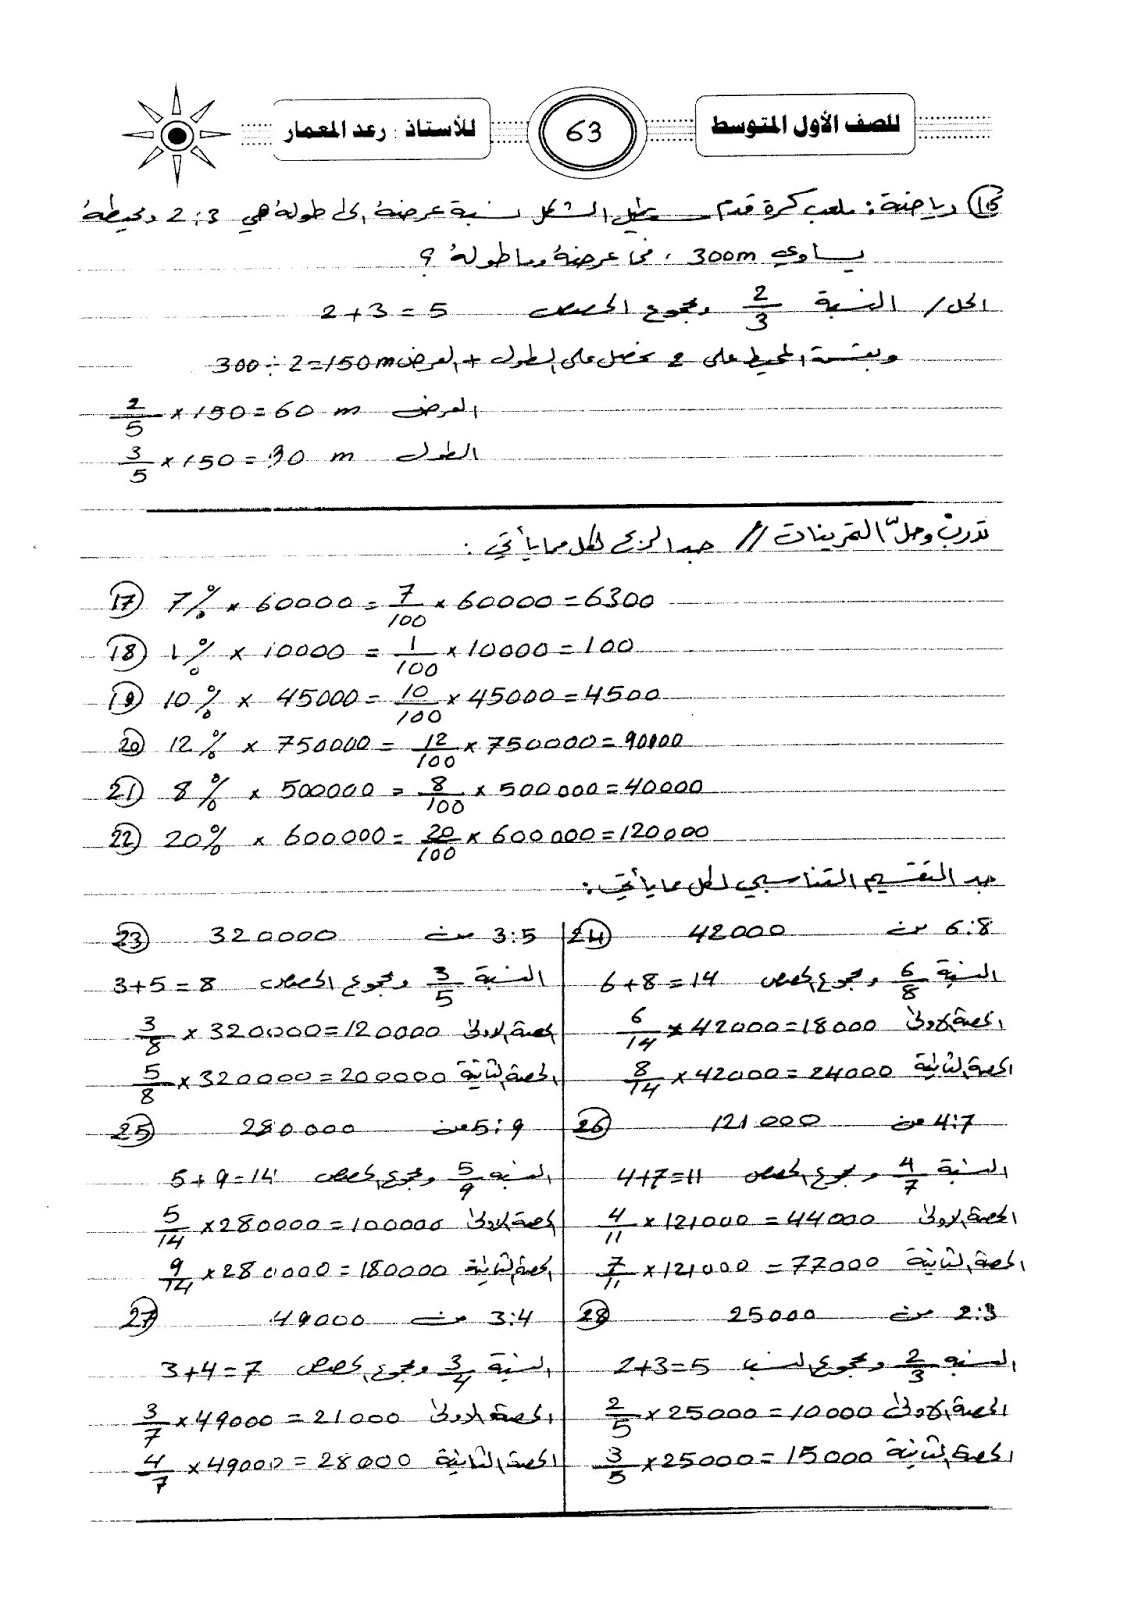 للصف الأول المتوسط
63
للأستاذ : رعد المعمار
16 رياضة : ملعب كرة قدم مستطيل الشكل نسبة عرضه الى طوله هي 2:3 ومحيطه
يساوي 300m ، فما عرضه وما طوله ؟
الحل / النسبة 2/3 ومجموع الحصص 2+3=5
وبقسمة المحيط على 2 نحصل على الطول + العرض 300÷2=150m
العرض 2/5 × 150 = 60 m
الطول 3/5 × 150 = 90 m
تدرب وحل التمرينات // جد الربح لكل مما يأتي :
17 7% × 60000 = 7/100 × 60000 = 6300
18 1% × 10000 = 1/100 × 10000 = 100
19 10% × 45000 = 10/100 × 45000 = 4500
20 12% × 750000 = 12/100 × 750000 = 90000
21 8% × 500000 = 8/100 × 500000 = 40000
22 20% × 600000 = 20/100 × 600000 = 120000
جد التقسيم التناسبي لكل مما يأتي :
23 3:5 من 320000
النسبة 3/5 ومجموع الحصص 3+5=8
الحصة الاولى 3/8 × 320000 = 120000
الحصة الثانية 5/8 × 320000 = 200000
24 6:8 من 42000
النسبة 6/8 ومجموع الحصص 6+8=14
الحصة الاولى 6/14 × 42000 = 18000
الحصة الثانية 8/14 × 42000 = 24000
25 5:9 من 280000
النسبة 5/9 ومجموع الحصص 5+9=14
الحصة الاولى 5/14 × 280000 = 100000
الحصة الثانية 9/14 × 280000 = 180000
26 4:7 من 121000
النسبة 4/7 ومجموع الحصص 4+7=11
الحصة الاولى 4/11 × 121000 = 44000
الحصة الثانية 7/11 × 121000 = 77000
27 3:4 من 49000
النسبة 3/4 ومجموع الحصص 3+4=7
الحصة الاولى 3/7 × 49000 = 21000
الحصة الثانية 4/7 × 49000 = 28000
28 2:3 من 25000
النسبة 2/3 ومجموع النسب 2+3=5
الحصة الاولى 2/5 × 25000 = 10000
الحصة الثانية 3/5 × 25000 = 15000